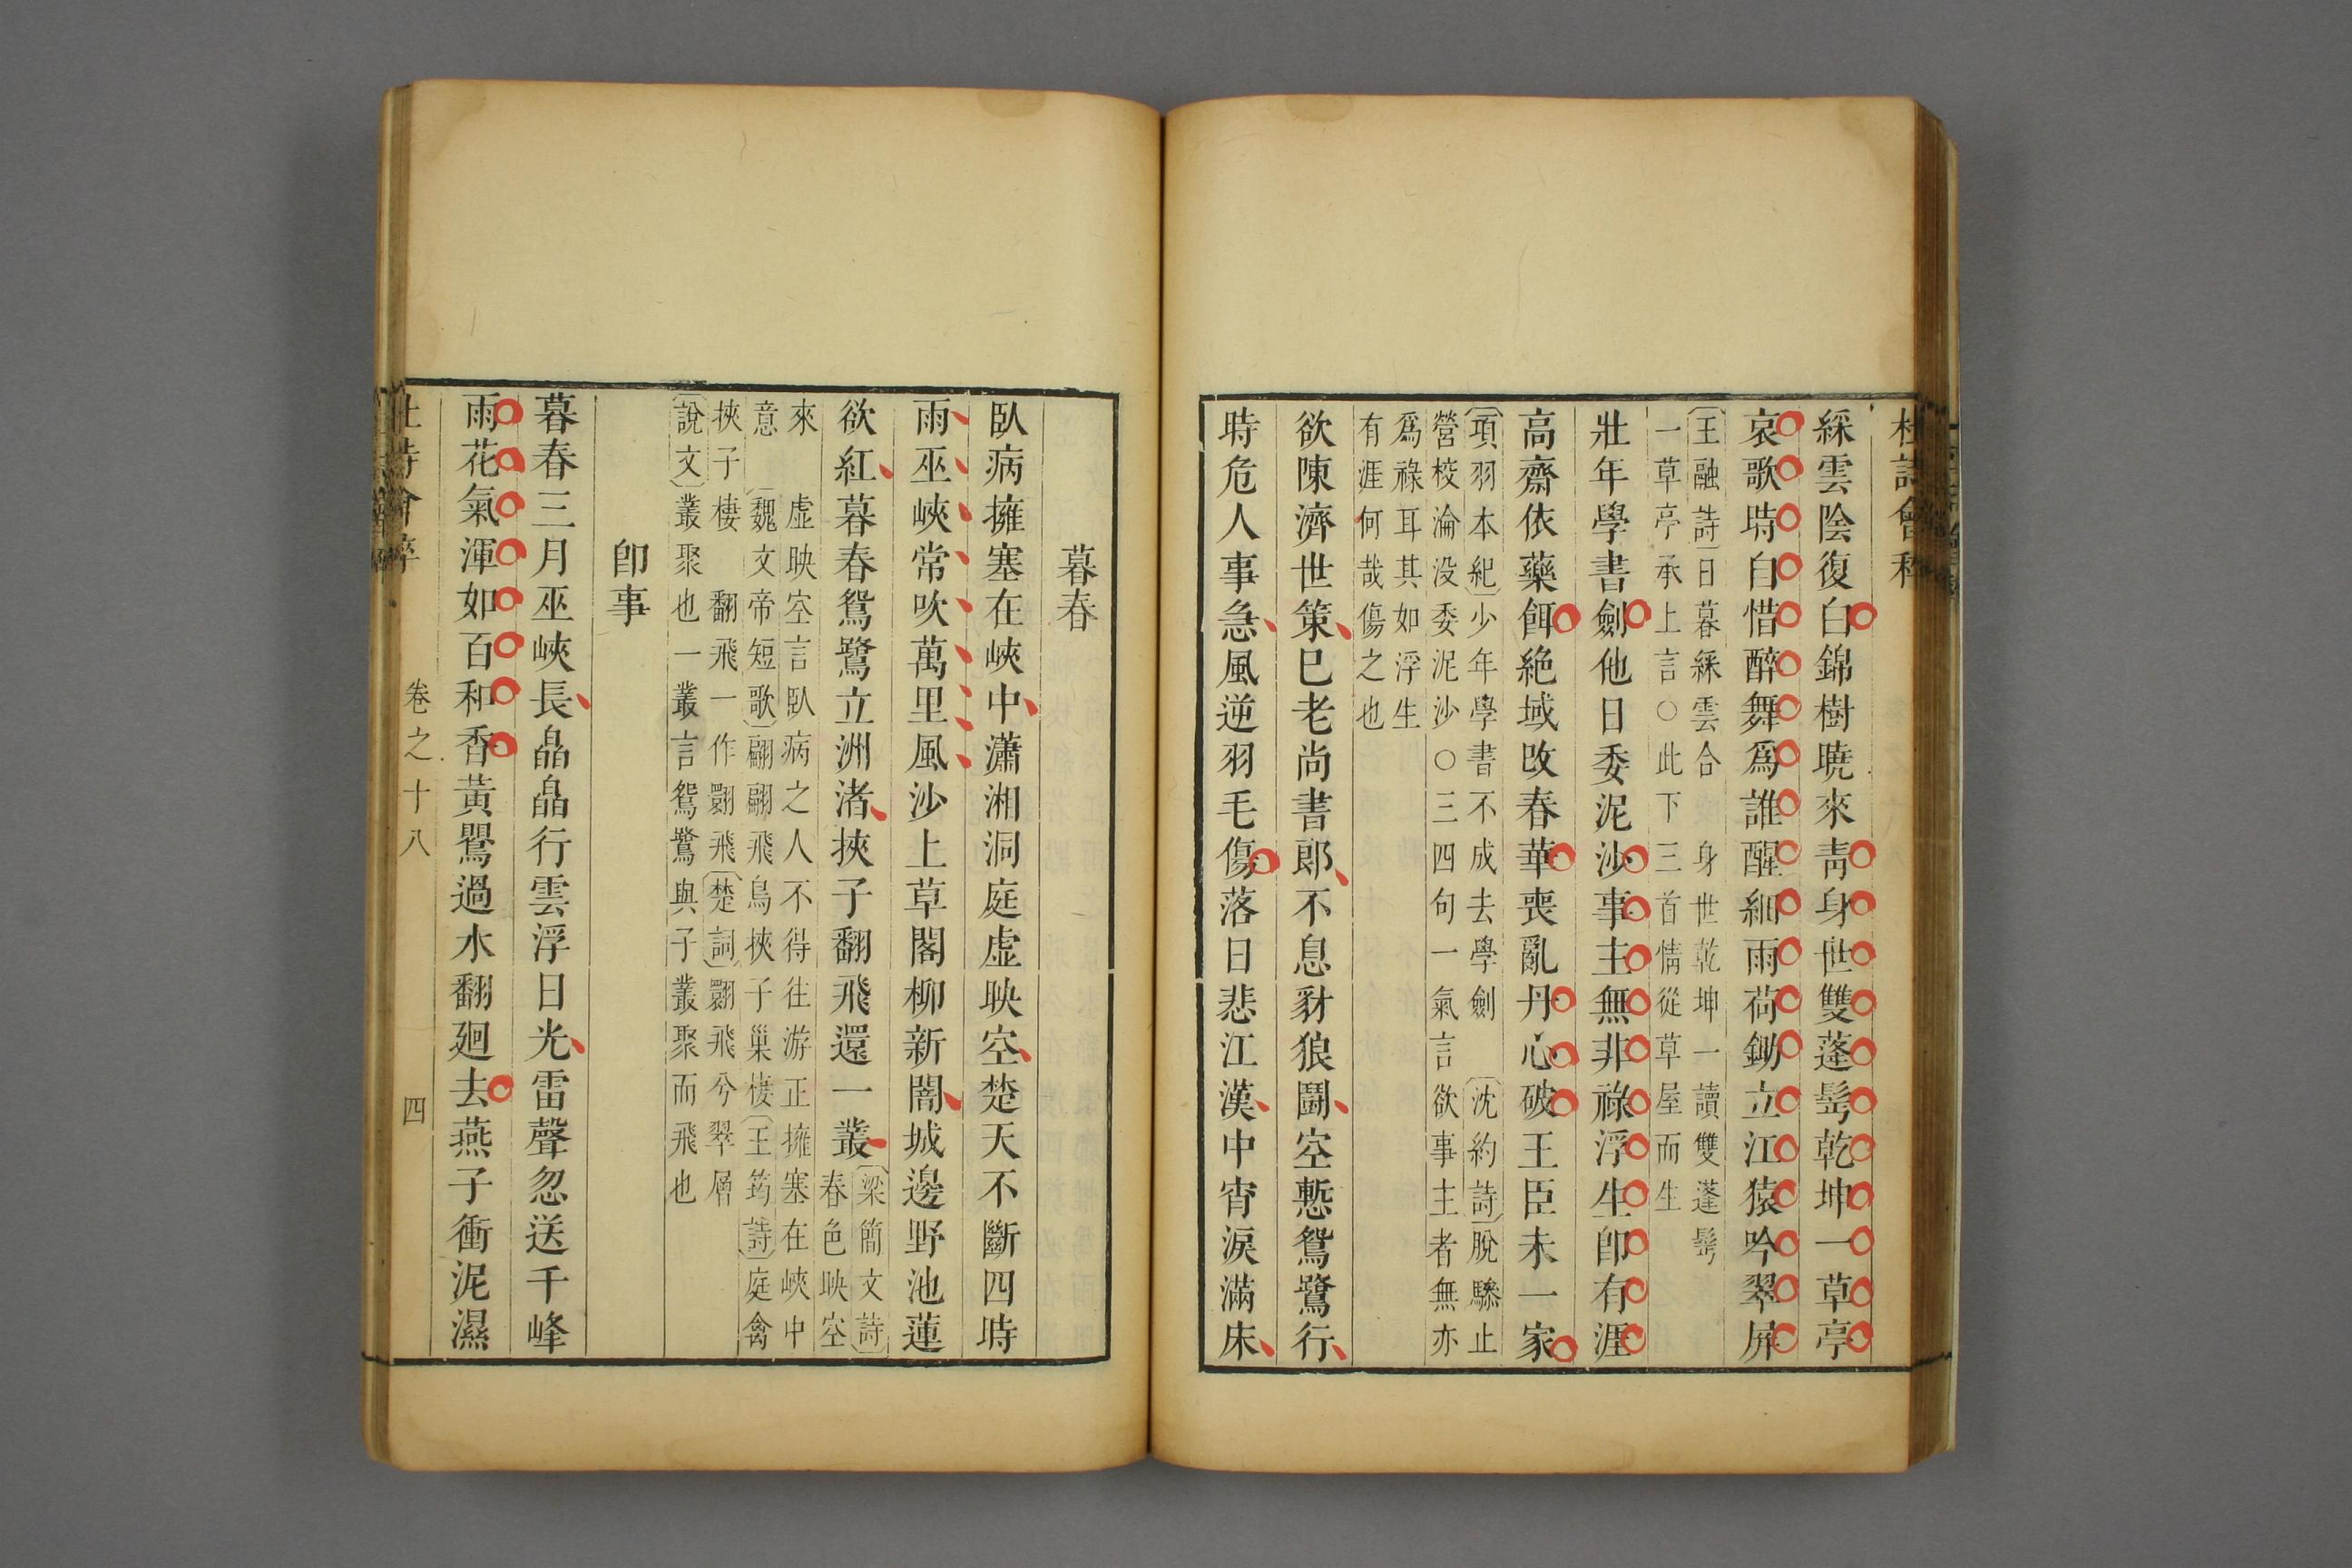 杜詩會稡
綵雲陰復白錦樹曉來靑身世雙蓬髩乾坤一草亭
哀歌時自惜醉舞爲誰醒細雨荷鋤立江猿吟翠屏
王融詩日暮綵雲合 身世乾坤一讀雙蓬髩
一草亭承上言○此下三首情從草屋而生
壯年學書劍他日委泥沙事主無非祿浮生卽有涯
高齋依藥餌絶域改春華喪亂丹心破王臣未一家
項羽本紀少年學書不成去學劍 沈約詩脫驂止
營校淪没委泥沙○三四句一氣言欲事主者無亦
爲祿耳其如浮生
有涯何哉傷之也
欲陳濟世策已老尚書郎不息豺狼鬭空慙鴛鷺行
時危人事急風逆羽毛傷落日悲江漢中宵淚滿床
暮春
臥病擁塞在峽中瀟湘洞庭虛映空楚天不斷四時
雨巫峽常吹萬里風沙上草閣柳新闇城邊野池蓮
欲紅暮春鴛鷺立洲渚挾子翻飛還一叢
梁簡文詩
春色映空
來 虛映空言臥病之人不得往游正擁塞在峽中
意 魏文帝短歌翩翩飛鳥挾子巢棲王筠詩庭禽
挾子棲 翻飛一作翾飛楚詞翾飛兮翠層
說文叢聚也一叢言鴛鷺與子叢聚而飛也
卽事
暮春三月巫峽長晶晶行雲浮日光雷聲忽送千峰
雨花氣渾如百和香黃鸎過水翻廻去燕子衝泥濕
杜詩會稡 卷之十八 四